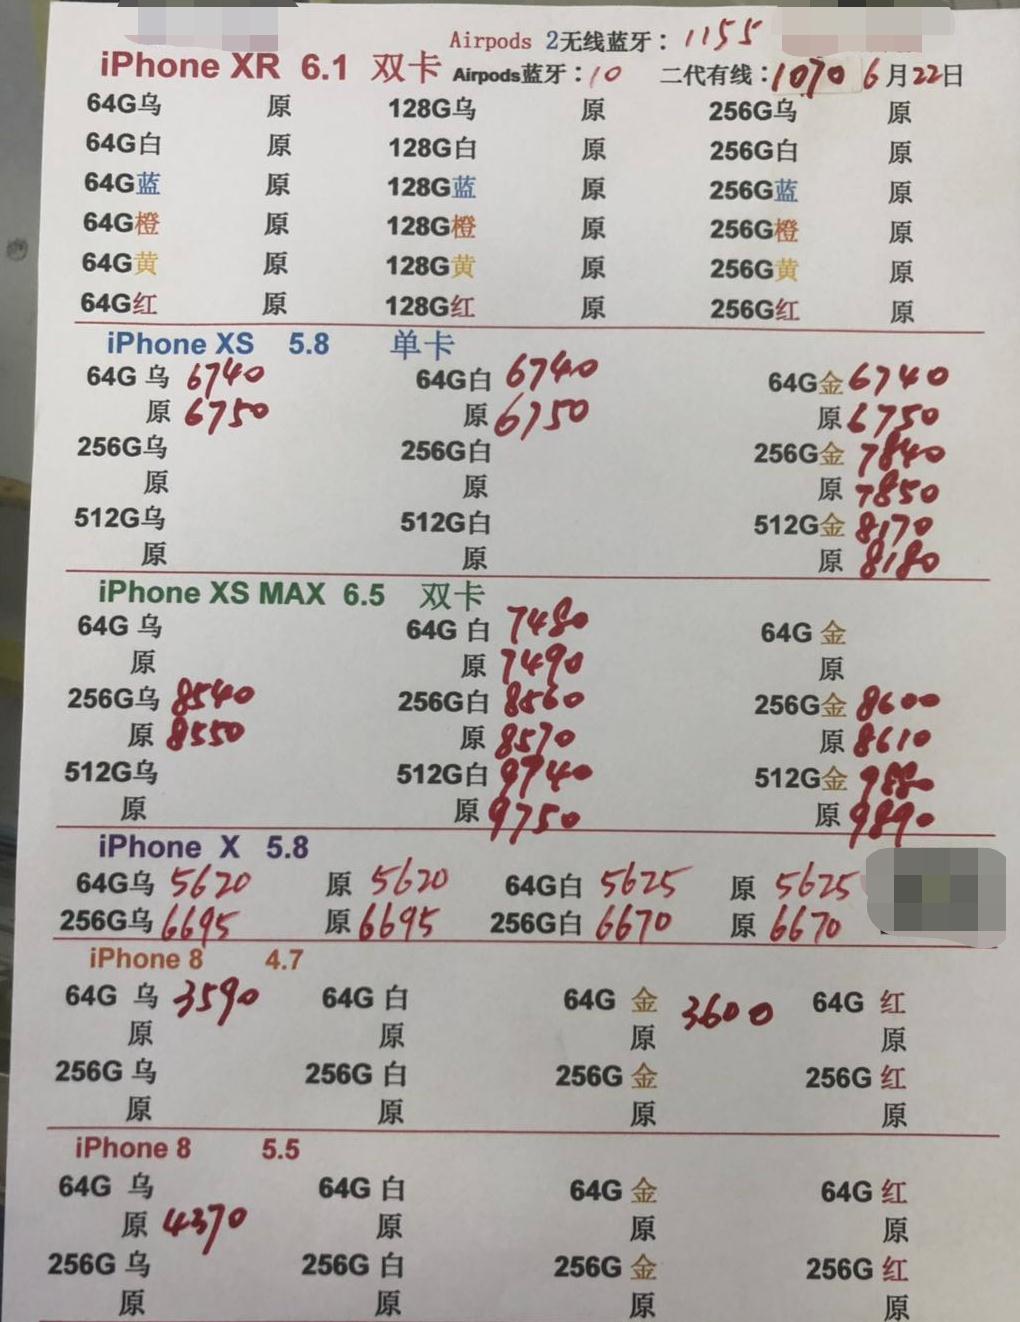 Airpods 2无线蓝牙：1155
iPhone XR 6.1 双卡 Airpods蓝牙：10 二代有线：1070 6月22日
64G乌 原 128G乌 原 256G乌 原
64G白 原 128G白 原 256G白 原
64G蓝 原 128G蓝 原 256G蓝 原
64G橙 原 128G橙 原 256G橙 原
64G黄 原 128G黄 原 256G黄 原
64G红 原 128G红 原 256G红 原
iPhone XS 5.8 单卡
64G 乌 6740 64G白 6740 64G金 6740
原 6750 原 6750 原 6750
256G乌 256G白 256G金 7840
原 原 原 7850
512G乌 512G白 512G金 8170
原 原 原 8180
iPhone XS MAX 6.5 双卡
64G 乌 64G 白 7480 64G 金
原 原 7490 原
256G乌 8540 256G白 8560 256G金 8600
原 8550 原 8570 原 8610
512G乌 512G白 9740 512G金 9880
原 原 9750 原 9890
iPhone X 5.8
64G乌 5620 原 5620 64G白 5625 原 5625
256G乌 6695 原 6695 256G白 6670 原 6670
iPhone 8 4.7
64G 乌 3590 64G 白 64G 金 3600 64G 红
原 原 原 原
256G 乌 256G 白 256G 金 256G 红
原 原 原 原
iPhone 8 5.5
64G 乌 64G 白 64G 金 64G 红
原 4370 原 原 原
256G 乌 256G 白 256G 金 256G 红
原 原 原 原